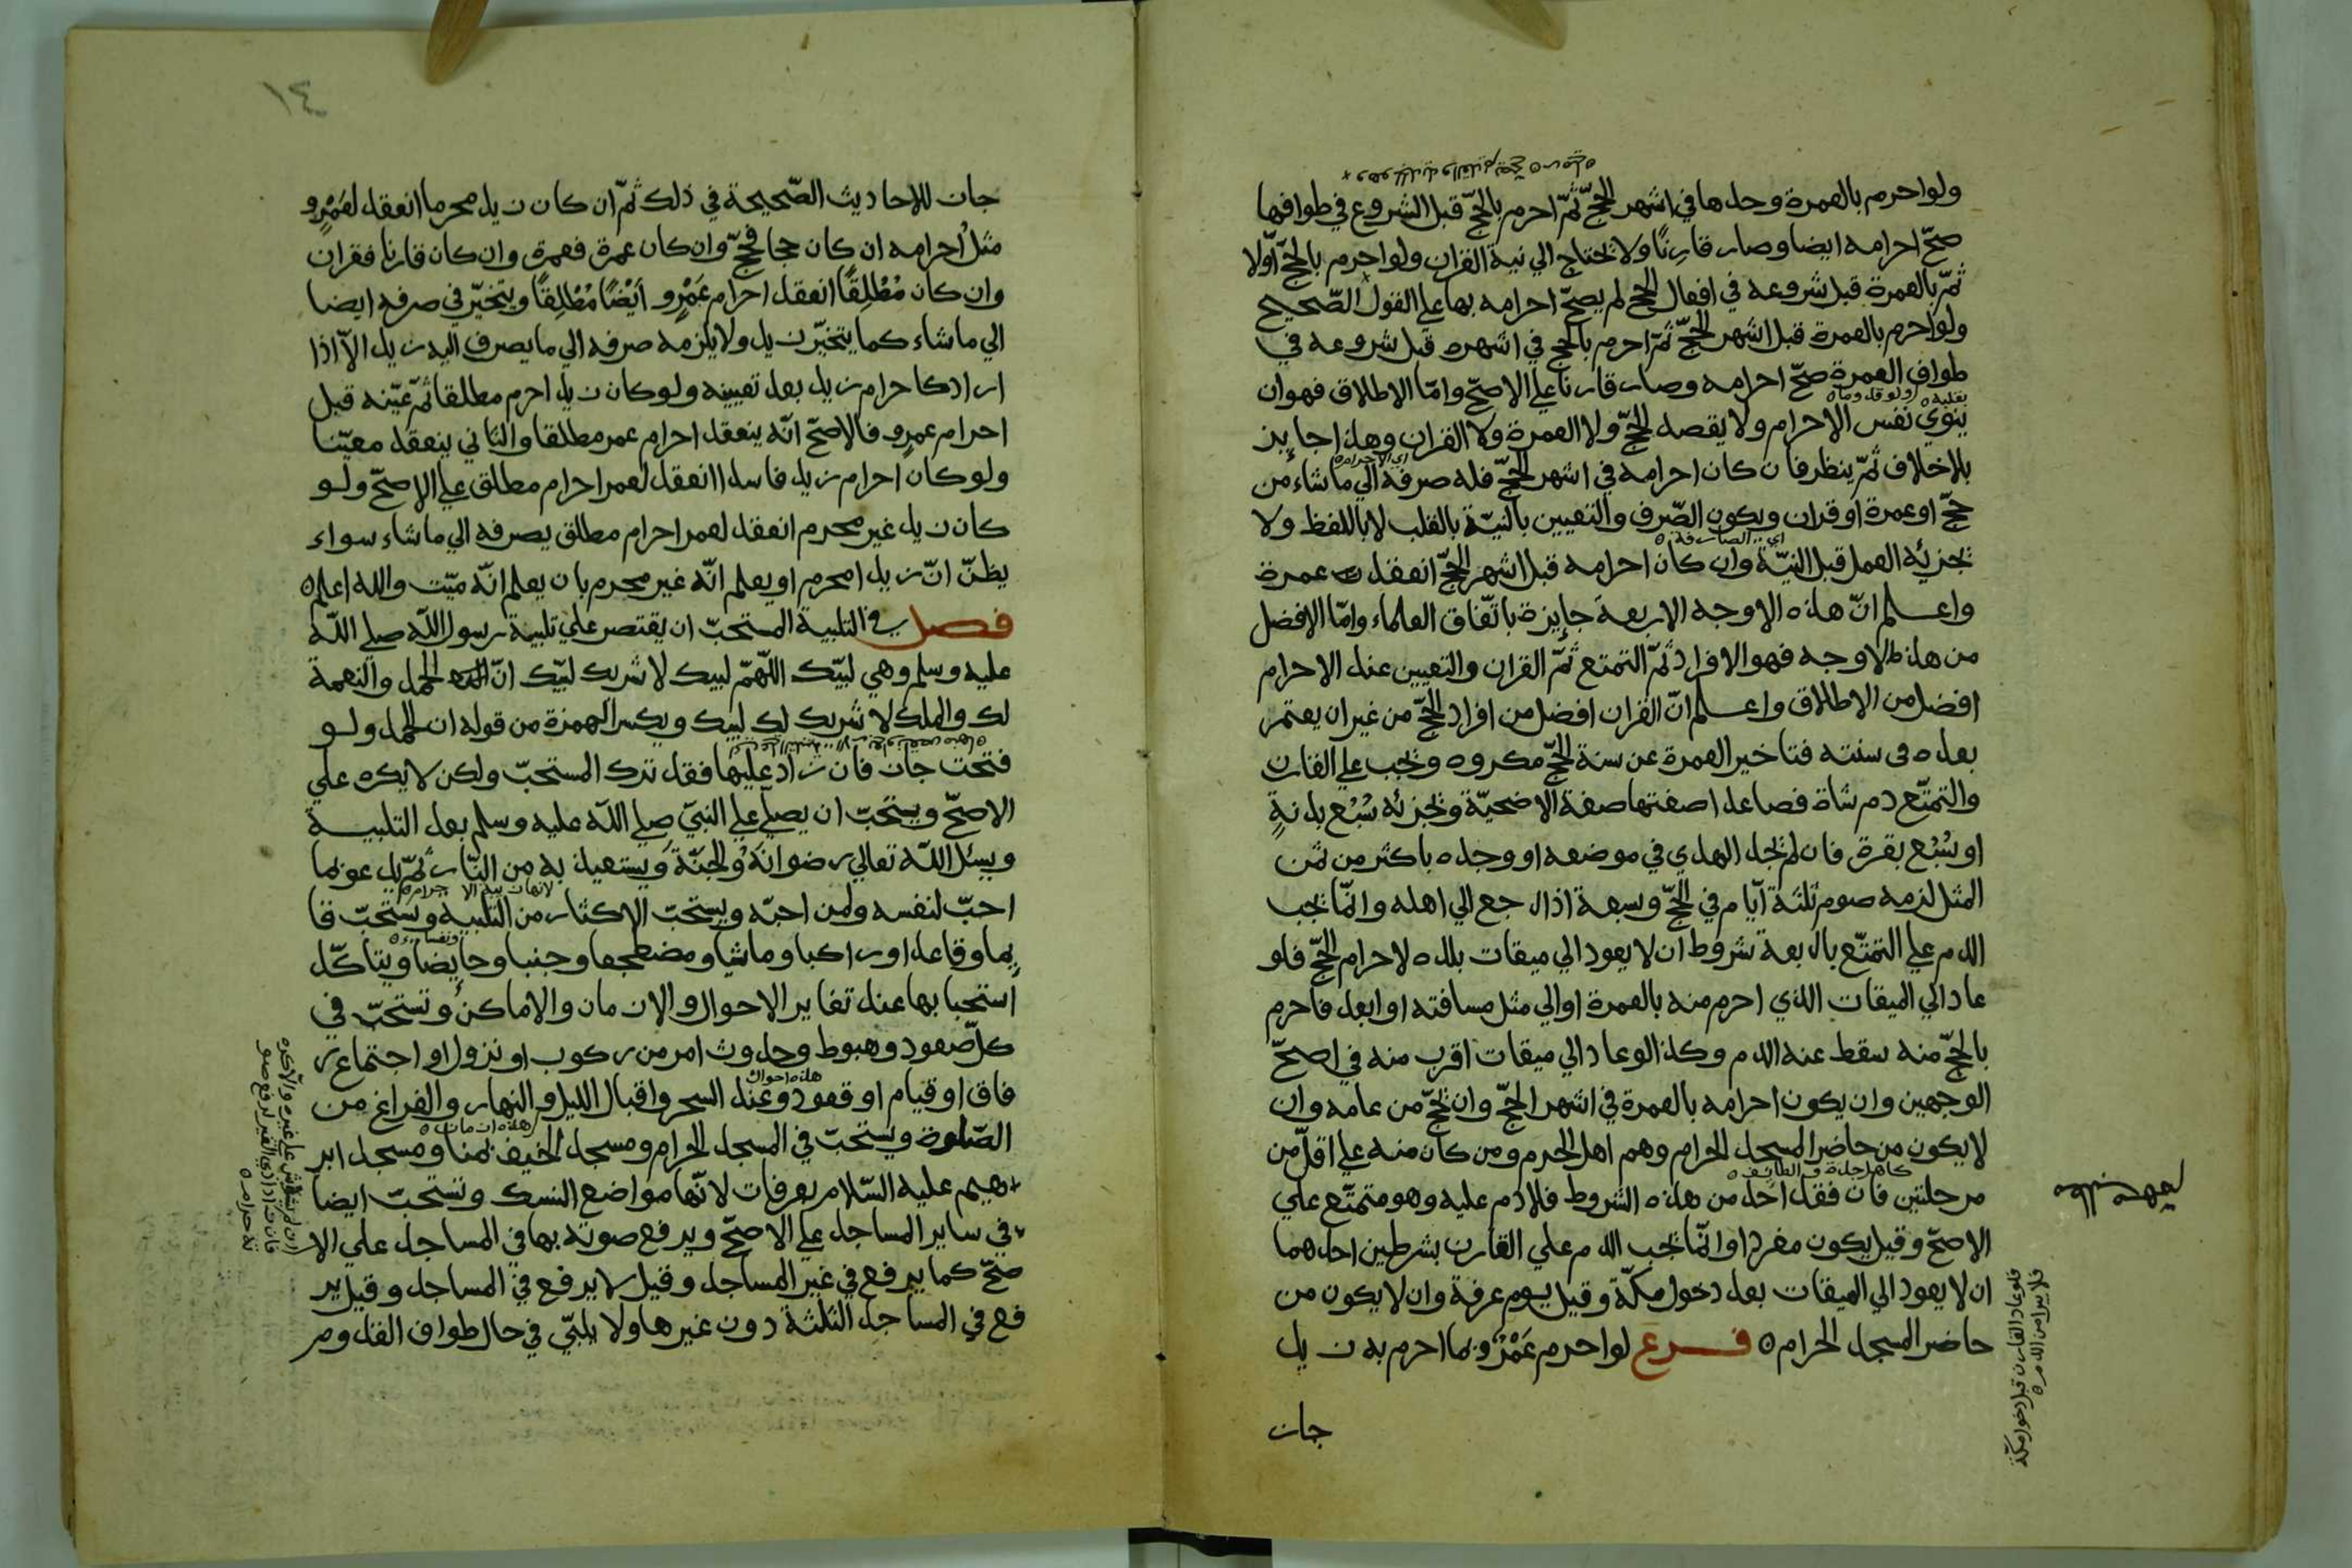 ولو احرم بالعمرة وحدها في اشهر الحجّ ثمّ احرم بالحجّ قبل الشروع في طوافها
صحّ احرامه ايضا وصار قارنًا ولا يحتاج الي نية القران ولو احرم بالحجّ اوّلا
ثمّ بالعمرة قبل شروعه في افعال الحج لم يصحّ احرامه بها علي القول الصّحيح
ولو احرم بالعمرة قبل اشهر الحجّ ثمّ احرم بالحج في اشهره قبل شروعه في
طواف العمرة صحّ احرامه وصار قارنا علي الاصحّ وامّا الاطلاق فهو ان
ينوي نفس الاحرام ولا يقصد الحجّ ولا العمرة ولا القران وهذا جايز
بلاخلاف ثمّ ينظر فان كان احرامه في اشهر الحجّ فله صرفه الي ماشاء من
اي الاحرام ٥
حجّ او عمرة او قران ويكون الصّرف والتعيين بالنيّة بالقلب لا باللفظ ولا
يجزئه العمل قبل النيّة وان كان احرامه قبل اشهر الحجّ انعقد عمرة
واعلم انّ هذه الاوجه الاربعة جايزة باتّفاق العلماء وامّا الافضل
من هذه الاوجه فهو الافراد ثمّ التمتع ثمّ القران والتعيين عند الاحرام
افضل من الاطلاق واعلم انّ القران افضل من افراد الحجّ من غير ان يعتمر
بعده في سنته فتاخير العمرة عن سنة الحجّ مكروه ويجب علي القارن
والتمتّع دم شاة فصاعدا صفتها صفة الاضحيّة ويجزئه سُبْع بدنةٍ
او سُبْع بقرة فان لم يجد الهدي في موضعه او وجده باكثر من ثمن
المثل لزمه صوم ثلثة ايّام في الحجّ وسبعة اذا رجع الي اهله وانّما يجب
الدم علي التمتّع باربعة شروط ان لا يعود الي ميقات بلده لاحرام الحجّ فلو
عاد الي الميقات الذي احرم منه بالعمرة او الي مثل مسافته او ابعد فاحرم
بالحجّ منه سقط عنه الدم وكذا لو عاد الي ميقات اقرب منه في اصحّ
الوجهين وان يكون احرامه بالعمرة في اشهر الحجّ وان يحجّ من عامه وان
لا يكون من حاضر المسجد الحرام وهم اهل الحرم ومن كان منه علي اقلّ من
كاهل جدة والطائف ٥
مرحلتين فان فقد احد من هذه الشروط فلا دم عليه وهو متمتّع علي
الاصحّ وقيل يكون مفردا وانّما يجب الدم علي القارن بشرطين احدهما
ان لا يعود الي الميقات بعد دخول مكّة وقيل يوم عرفة وان لا يكون من
حاضر المسجد الحرام ٥ فرع لو احرم عَمْرٌو بما احرم به زيد
جاز
فلو عاد القارن قبل دخول مكّة
فلا يبرا من الدم ٥
١٤
جاز للاحاديث الصّحيحة في ذلك ثمّ ان كان زيد محرما انعقد لعَمْرٍو
مثلُ احرامه ان كان حجا فحجّ وان كان عمرة فعمرة وان كان قارنا فقران
وان كان مُطْلِقًا انعقد احرام عَمْرٍو أيْضًا مُطْلِقًا ويتخيّر في صرفه ايضا
الي ماشاء كما يتخيّر زيد ولا يلزمه صرفه الي ما يصرف اليه زيد الّا اذا
اراد كاحرام زيد بعد تعيينه ولو كان زيد احرم مطلقا ثمّ عيّنه قبل
احرام عمرو فالاصحّ انّه ينعقد احرام عمر مطلقا والثاني ينعقد معيّنا
ولو كان احرام زيد فاسدا انعقد لعمر احرام مطلق علي الاصحّ ولو
كان زيد غير محرم انعقد لعمر احرام مطلق يصرفه الي ماشاء سواء
يظنّ انّ زيدا محرم او يعلم انّه غير محرم بان يعلم انّه ميّت والله اعلم ٥
فصل في التلبية المستحبّ ان يقتصر علي تلبية رسول اللّه صلي اللّه
عليه وسلم وهي لبّيك اللّهمّ لبيك لا شريك لبّيك انّ الحمد والنعمة
لك والملك لا شريك لك لبيك ويكسر الهمزة من قوله ان الحمد ولو
فتحت جاز فان زاد عليها فقد ترك المستحبّ ولكن لا يكره علي
الاصحّ ويستحبّ ان يصلّي علي النبيّ صلي اللّه عليه وسلم بعد التلبية
ويسئل اللّه تعالي رضوانه والجنّة ويستعيذ به من النّار ثمّ يدعو بما
احبّ لنفسه ولمن احبّه ويستحبّ الاكثار من التلبية ويستحبّ قا
يما وقاعدا وراكبا وماشيا ومضطجعا وجنبا وحايضا ويتاكّد
استحبابها عند تغاير الاحوال والازمان والاماكن وتستحبّ في
كلّ صعود وهبوط وحدوث امر من ركوب او نزول او اجتماع ر
هذه احوال
فاق او قيام او قعود وعند السحر واقبال الليل والنهار والفراغ من
هذه ازمان ٥
الصّلوة ويستحبّ في المسجد الحرام ومسجد الخيف بمنا ومسجد ابر
اهيم عليه السّلام بعرفات لانّها مواضع النسك وتستحبّ ايضا
في ساير المساجد علي الاصحّ ويرفع صوته بها في المساجد علي الا
صحّ كما يرفع في غير المساجد وقيل لا يرفع في المساجد وقيل ير
فع في المساجد الثلثة دون غيرها ولا يلبّي في حال طواف القدوم